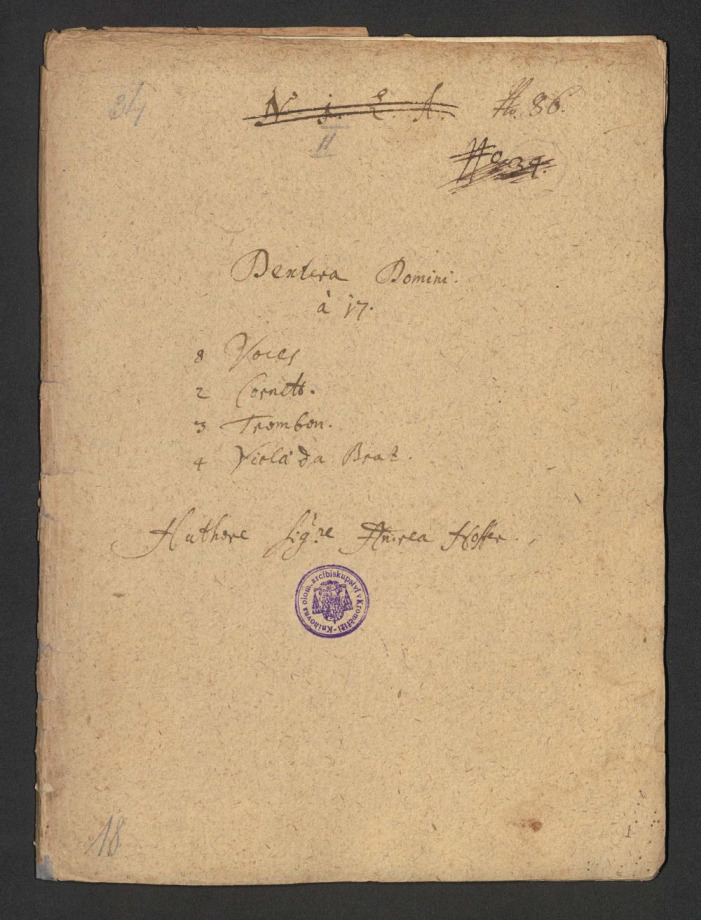 34
N. 1. L. A. No. 86.
II
Dextera Domini.
à 17.
8 Voces
2 Cornett.
3 Trombon.
4 Viola da Braz.
Authore Sig:re Andrea Hoffer.
Knihovna olom. arcibiskupství v Kroměříži
18
1